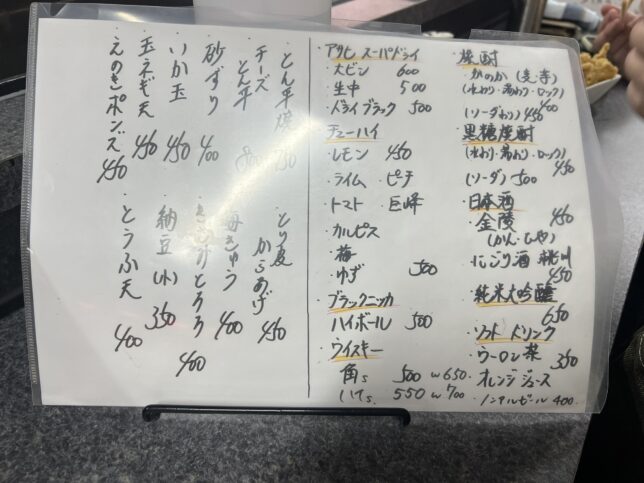 ・とん平焼 750
・チーズとん平 800
・砂ずり 400
・いか玉 450
・玉ネギ天 450
・えのきポンズ 450
・とり皮からあげ 450
・梅きゅう 400
・きむちとろろ 400
・納豆(小) 350
・とうふ天 400
・アサヒ スーパードライ
・大ビン 600
・生中 500
・ドライブラック 500
・チューハイ
・レモン 450
・ライム ピーチ
・トマト 巨峰
・カルピス
・梅
・ゆず 500
・ブラックニッカ
・ハイボール 500
・ウイスキー
角s 500 w650
いいちs 550 w700
・焼酎
・かのか(麦・芋)
(水わり・湯わり・ロック)
400
(ソーダわり) 450
・黒糖焼酎
(水わり・湯わり・ロック)
450
(ソーダ) 500
・日本酒
・金陵 450
(かん・ひや)
・にごり酒 桃川
450
・純米大吟醸
650
・ソフトドリンク
・ウーロン茶 350
・オレンジジュース
・ノンアルビール 400